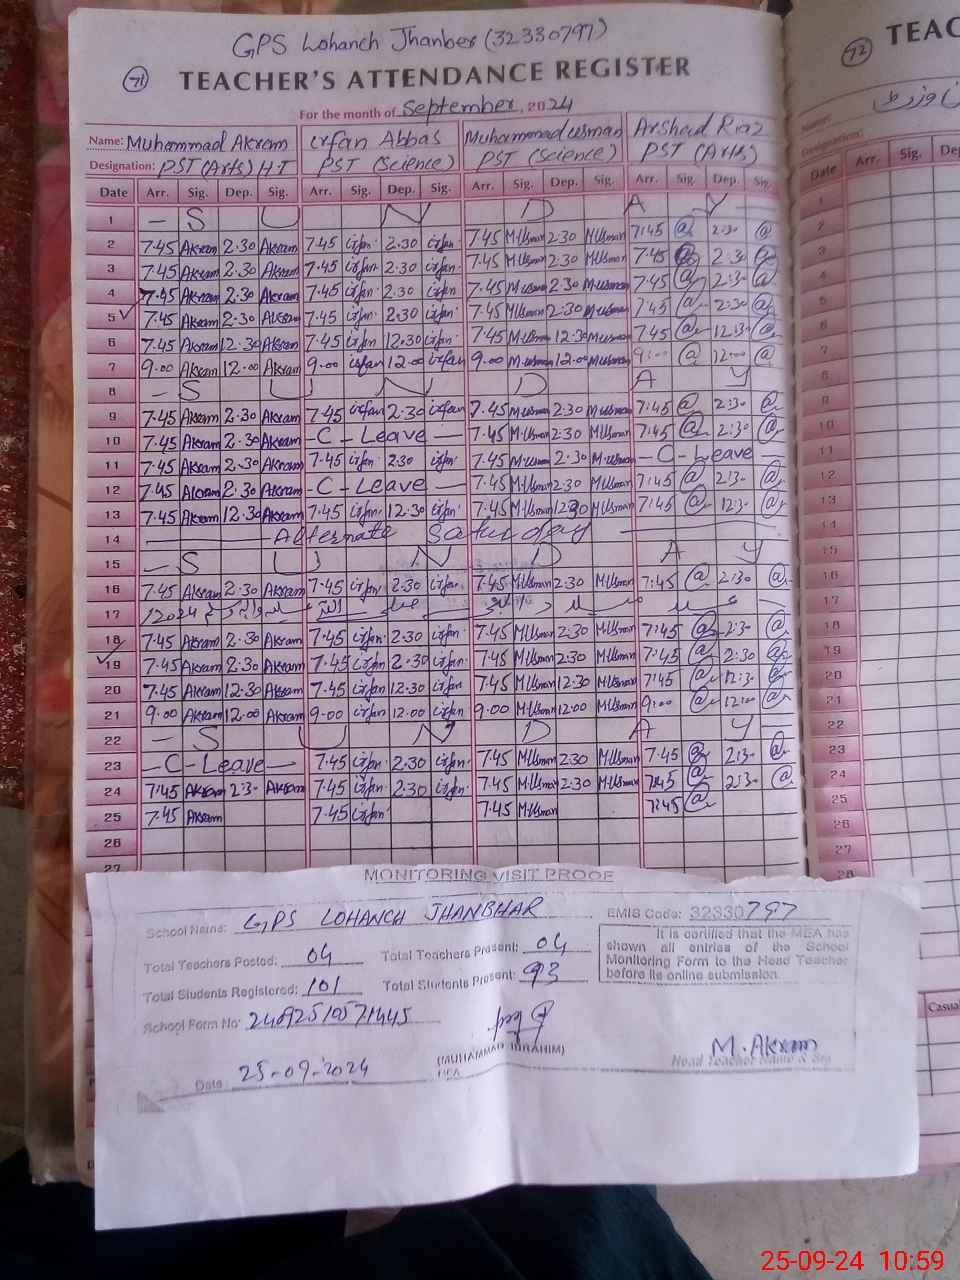 GPS Lohanch Jhanber (32330797)
71 TEACHER'S ATTENDANCE REGISTER
For the month of September, 2024
Name: Muhammad Akram Irfan Abbas Muhammad usman Arshad Riaz
Designation: PST (Arts) H T PST (Science) PST (Science) PST (Arts)
Date Arr. Sig. Dep. Sig. Arr. Sig. Dep. Sig. Arr. Sig. Dep. Sig. Arr. Sig. Dep. Sig.
1 — S U N D A Y
2 7.45 Akram 2.30 Akram 7.45 irfan 2.30 irfan 7.45 M.Usman 2.30 M.Usman 7:45 2:30
3 7.45 Akram 2.30 Akram 7.45 irfan 2.30 irfan 7.45 M.Usman 2.30 M.Usman 7.45 2:30
4 7.45 Akram 2.30 Akram 7.45 irfan 2.30 irfan 7.45 M.usman 2.30 M.usman 7.45 2:30
5 7.45 Akram 2.30 Akram 7.45 irfan 2.30 irfan 7.45 M.usman 2.30 M.usman 7:45 2:30
6 7.45 Akram 12.30 Akram 7.45 irfan 12.30 irfan 7.45 M.usman 12.30 M.usman 7.45 12:30
7 9.00 Akram 12.00 Akram 9.00 irfan 12.00 irfan 9.00 M.usman 12.00 M.usman 9:00 12:00
8 — S U N D A Y
9 7.45 Akram 2.30 Akram 7.45 irfan 2.30 irfan 7.45 M.usman 2.30 M.usman 7:45 2:30
10 7.45 Akram 2.30 Akram — C - Leave — 7.45 M.usman 2.30 M.usman 7:45 2:30
11 7.45 Akram 2.30 Akram 7.45 irfan 2.30 irfan 7.45 M.usman 2.30 M.usman — C - Leave —
12 7.45 Akram 2.30 Akram — C - Leave — 7.45 M.Usman 2.30 M.Usman 7:45 2:30
13 7.45 Akram 12.30 Akram 7.45 irfan 12.30 irfan 7.45 M.Usman 12.30 M.Usman 7:45 12:30
14 Alternate Saturday
15 — S U N D A Y
16 7.45 Akram 2.30 Akram 7.45 irfan 2.30 irfan 7.45 M.Usman 2.30 M.Usman 7:45 2:30
17
18 7.45 Akram 2.30 Akram 7.45 irfan 2.30 irfan 7.45 M.Usman 2.30 M.Usman 7:45 2:30
19 7.45 Akram 2.30 Akram 7.45 irfan 2.30 irfan 7.45 M.Usman 2.30 M.Usman 7:45 2:30
20 7.45 Akram 12.30 Akram 7.45 irfan 12.30 irfan 7.45 M.Usman 12.30 M.Usman 7:45 12:30
21 9.00 Akram 12.00 Akram 9.00 irfan 12.00 irfan 9.00 M.Usman 12.00 M.Usman 9:00 12:00
22 — S U N D A Y
23 — C - Leave — 7.45 irfan 2.30 irfan 7.45 M.Usman 2.30 M.Usman 7.45 2:30
24 7:45 Akram 2:30 Akram 7.45 irfan 2.30 irfan 7.45 M.Usman 2.30 M.Usman 7:45 2:30
25 7.45 Akram 7.45 irfan 7.45 M.Usman 7:45
26
27
MONITORING VISIT PROOF
School Name: GPS LOHANCH JHANBHAR EMIS Code: 32330797
Total Teachers Posted: 04 Total Teachers Present: 04
Total Students Registered: 101 Total Students Present: 93
It is certified that the MEA has
shown all entries of the School
Monitoring Form to the Head Teacher
before its online submission.
School Form No:
(MUHAMMAD IBRAHIM)
MEA
M. Akram
Head Teacher Name & Sig
Date: 25-09-2024
72 TEAC
Name:
Designation:
Date Arr. Sig. De
1
2
3
4
5
6
7
8
9
10
11
12
13
14
15
16
17
18
19
20
21
22
23
24
25
26
27
28
Casual
25-09-24 10:59